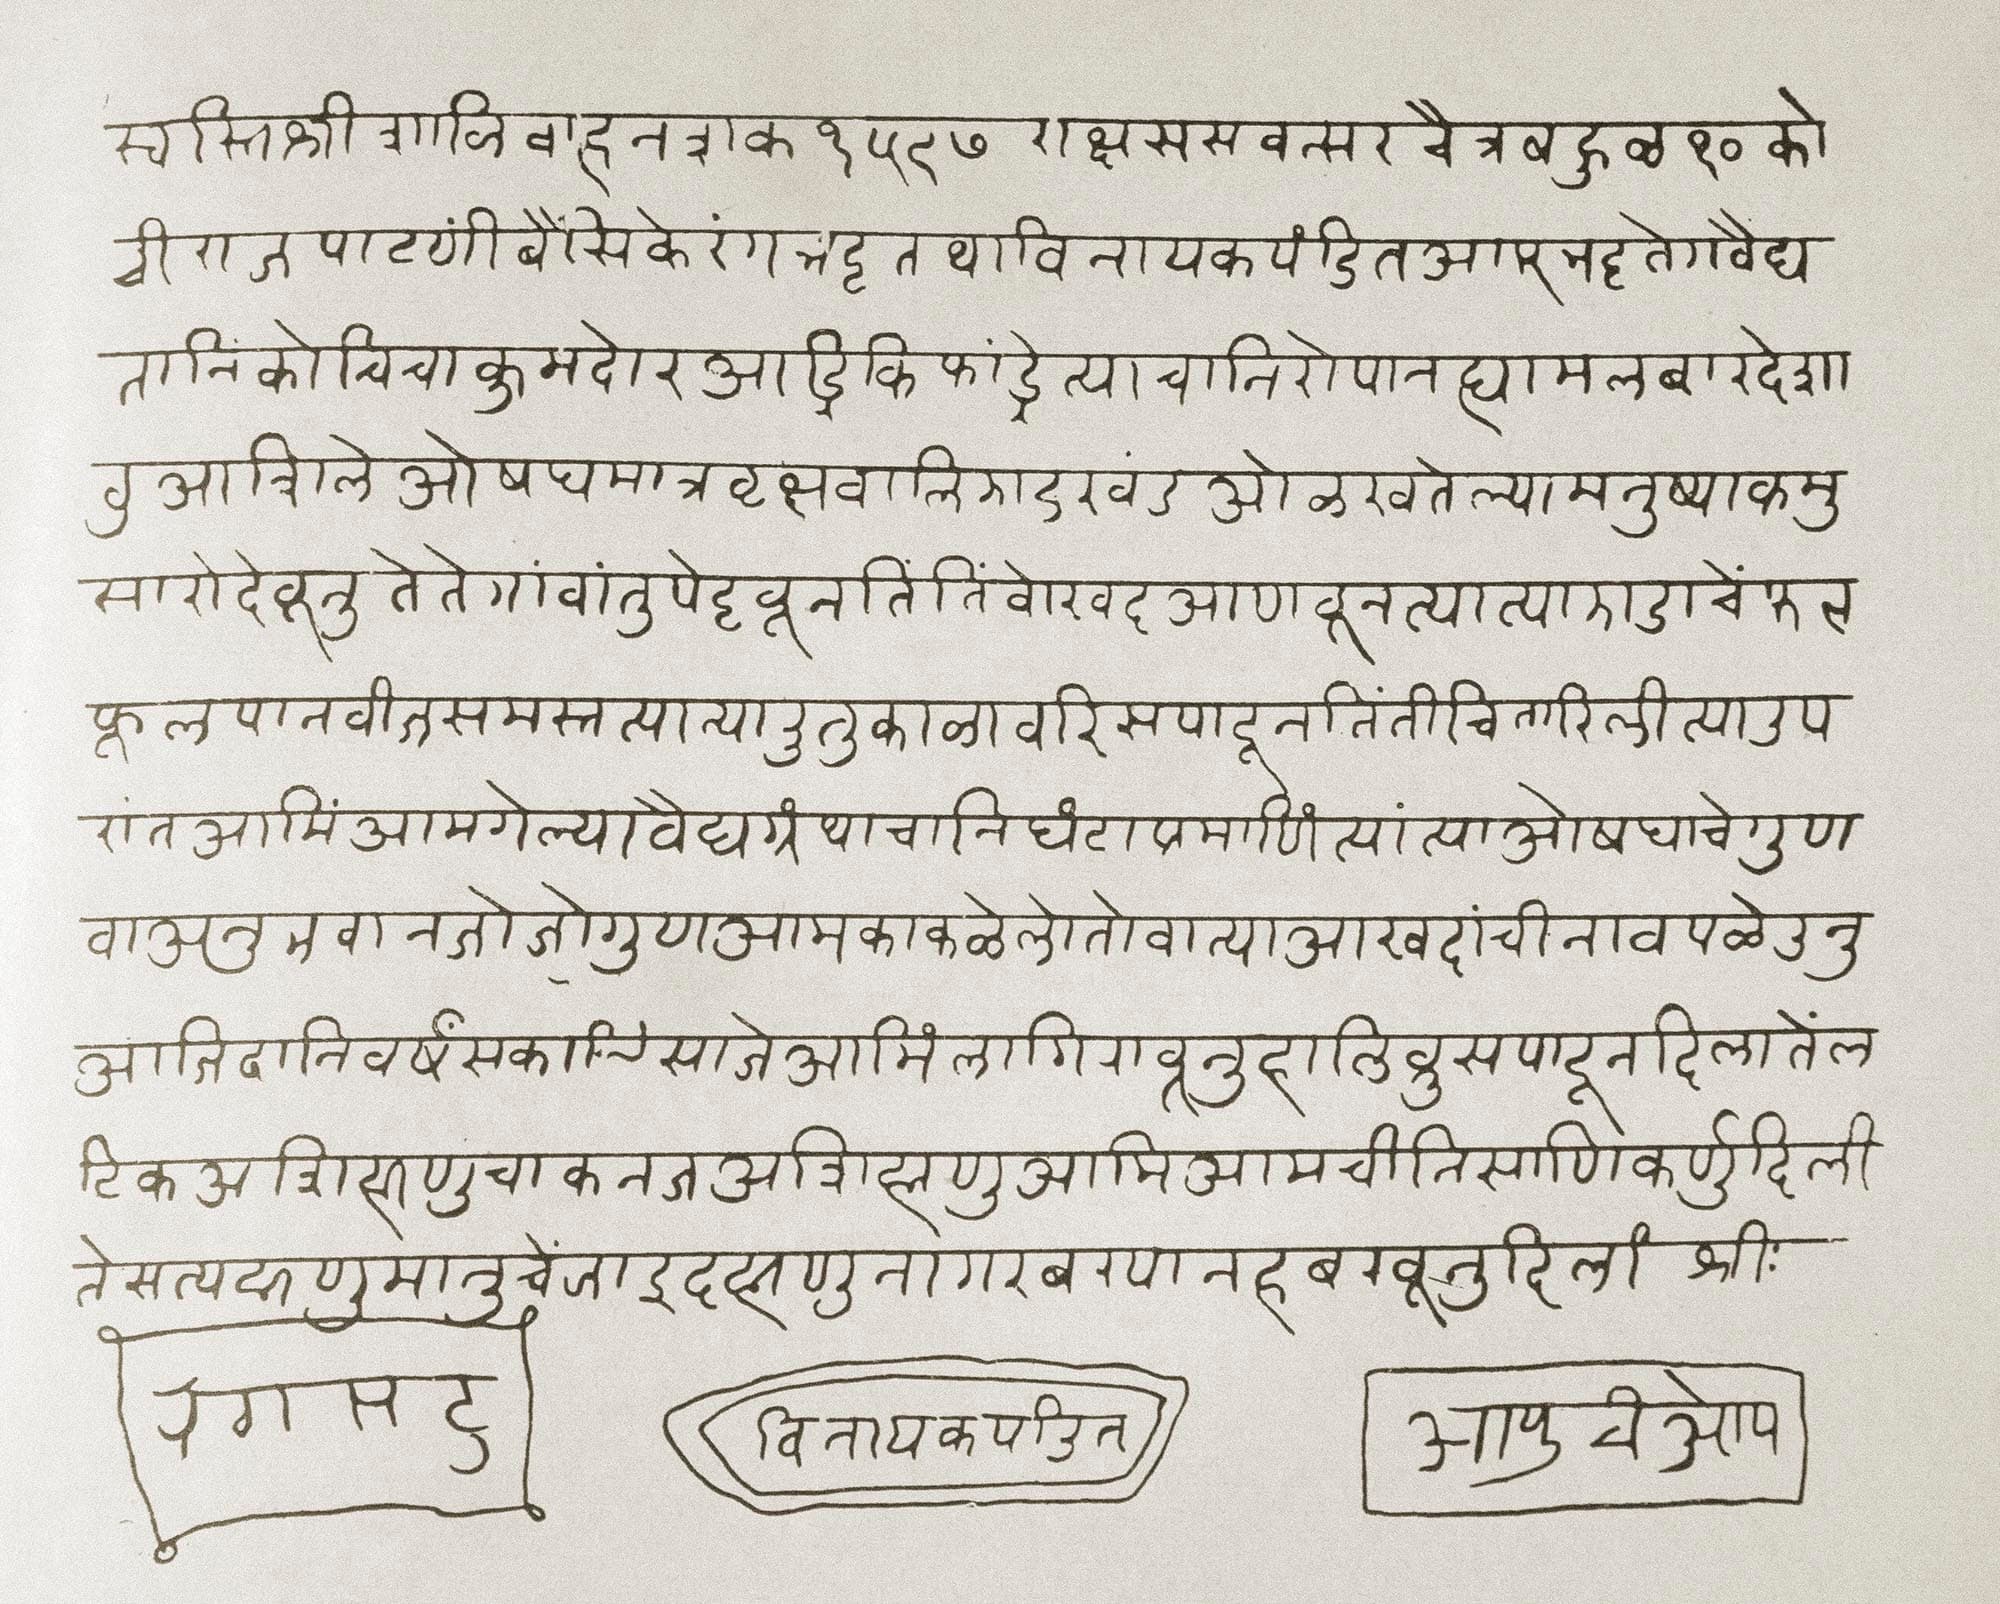 स्वस्तिश्री शालिवाहन शक १५९७ राक्षस सवत्सर चैत्र बहुळ १० को
ची राज पाटणीं बैसिके रंगभट्ट तथा विनायक पंडित आपुभट्ट ते ग वैद्य
तानि कोचिचा कुमदोर आंद्रिकि फांद्रे त्याचा निरोपान ह्या मलबार देशा
तु आशिले ओषध मात्र वृक्ष वालि झाड खंड ओळखतेल्या मनुष्याक मु
सारो देवूनु ते ते गांवांतु पेट्टवून तिं तिं वोखद आणवून त्या त्या झाडाचें फल
फूल पान वीज समस्त त्या त्या रुतु काळावरि सपाटून तिं ती चितारिली त्या उप
रांत आमिं आमगेल्या वैद्य ग्रंथाचा निघंटा प्रमाणिं त्यां त्या ओषधाचे गुण
वा अनुभवान जो जो गुण आमका कळेलो तो वा त्या आखदांची नाव पळेउनु
आजि दानि वर्षं सकाळिं सांजे आमिं लागि रावूनु हालिवु सपाटून दिला तें ल
टिक अशि ह्मणुचाक नज अशि ह्मणु आमि आमची निसाणि कर्णु दिली
ते सत्य ह्मणु मानुचें जाइद ह्मणु नागर बरपान ह बरवूनु दिलां श्रीः
रगभट्ट
विनायक पंडित
आपु